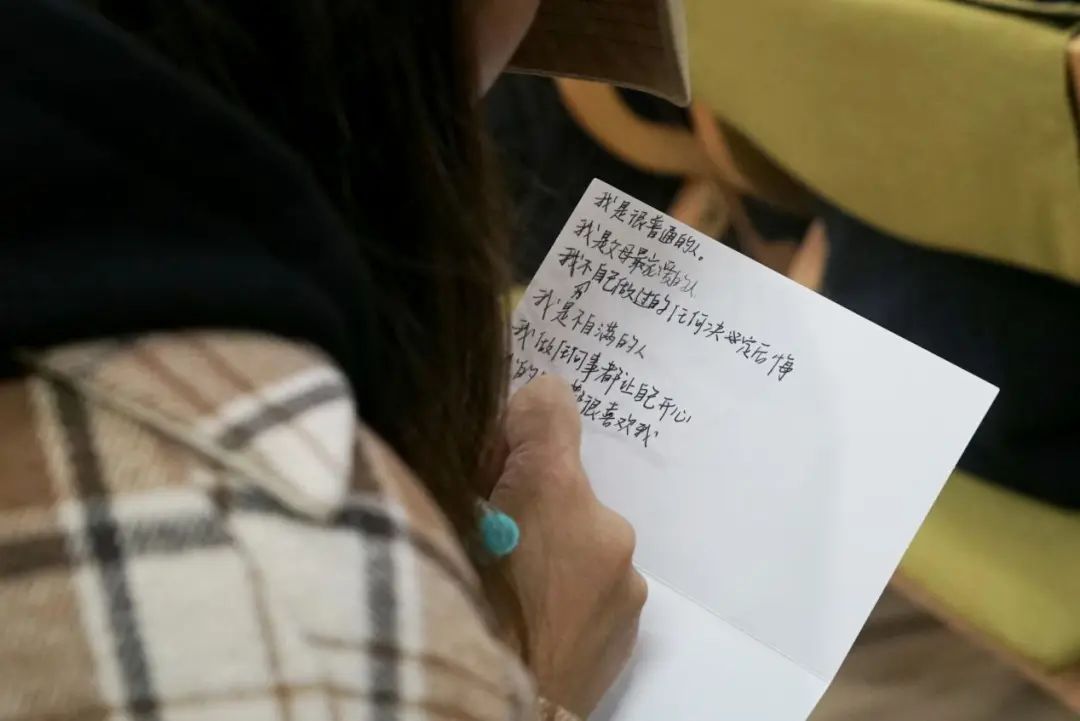 我是很普通的人。
我是父母最宠爱的人
我不为自己做过的任何决定后悔
我是不自满的人
我做任何事都让自己开心
的 都很喜欢我